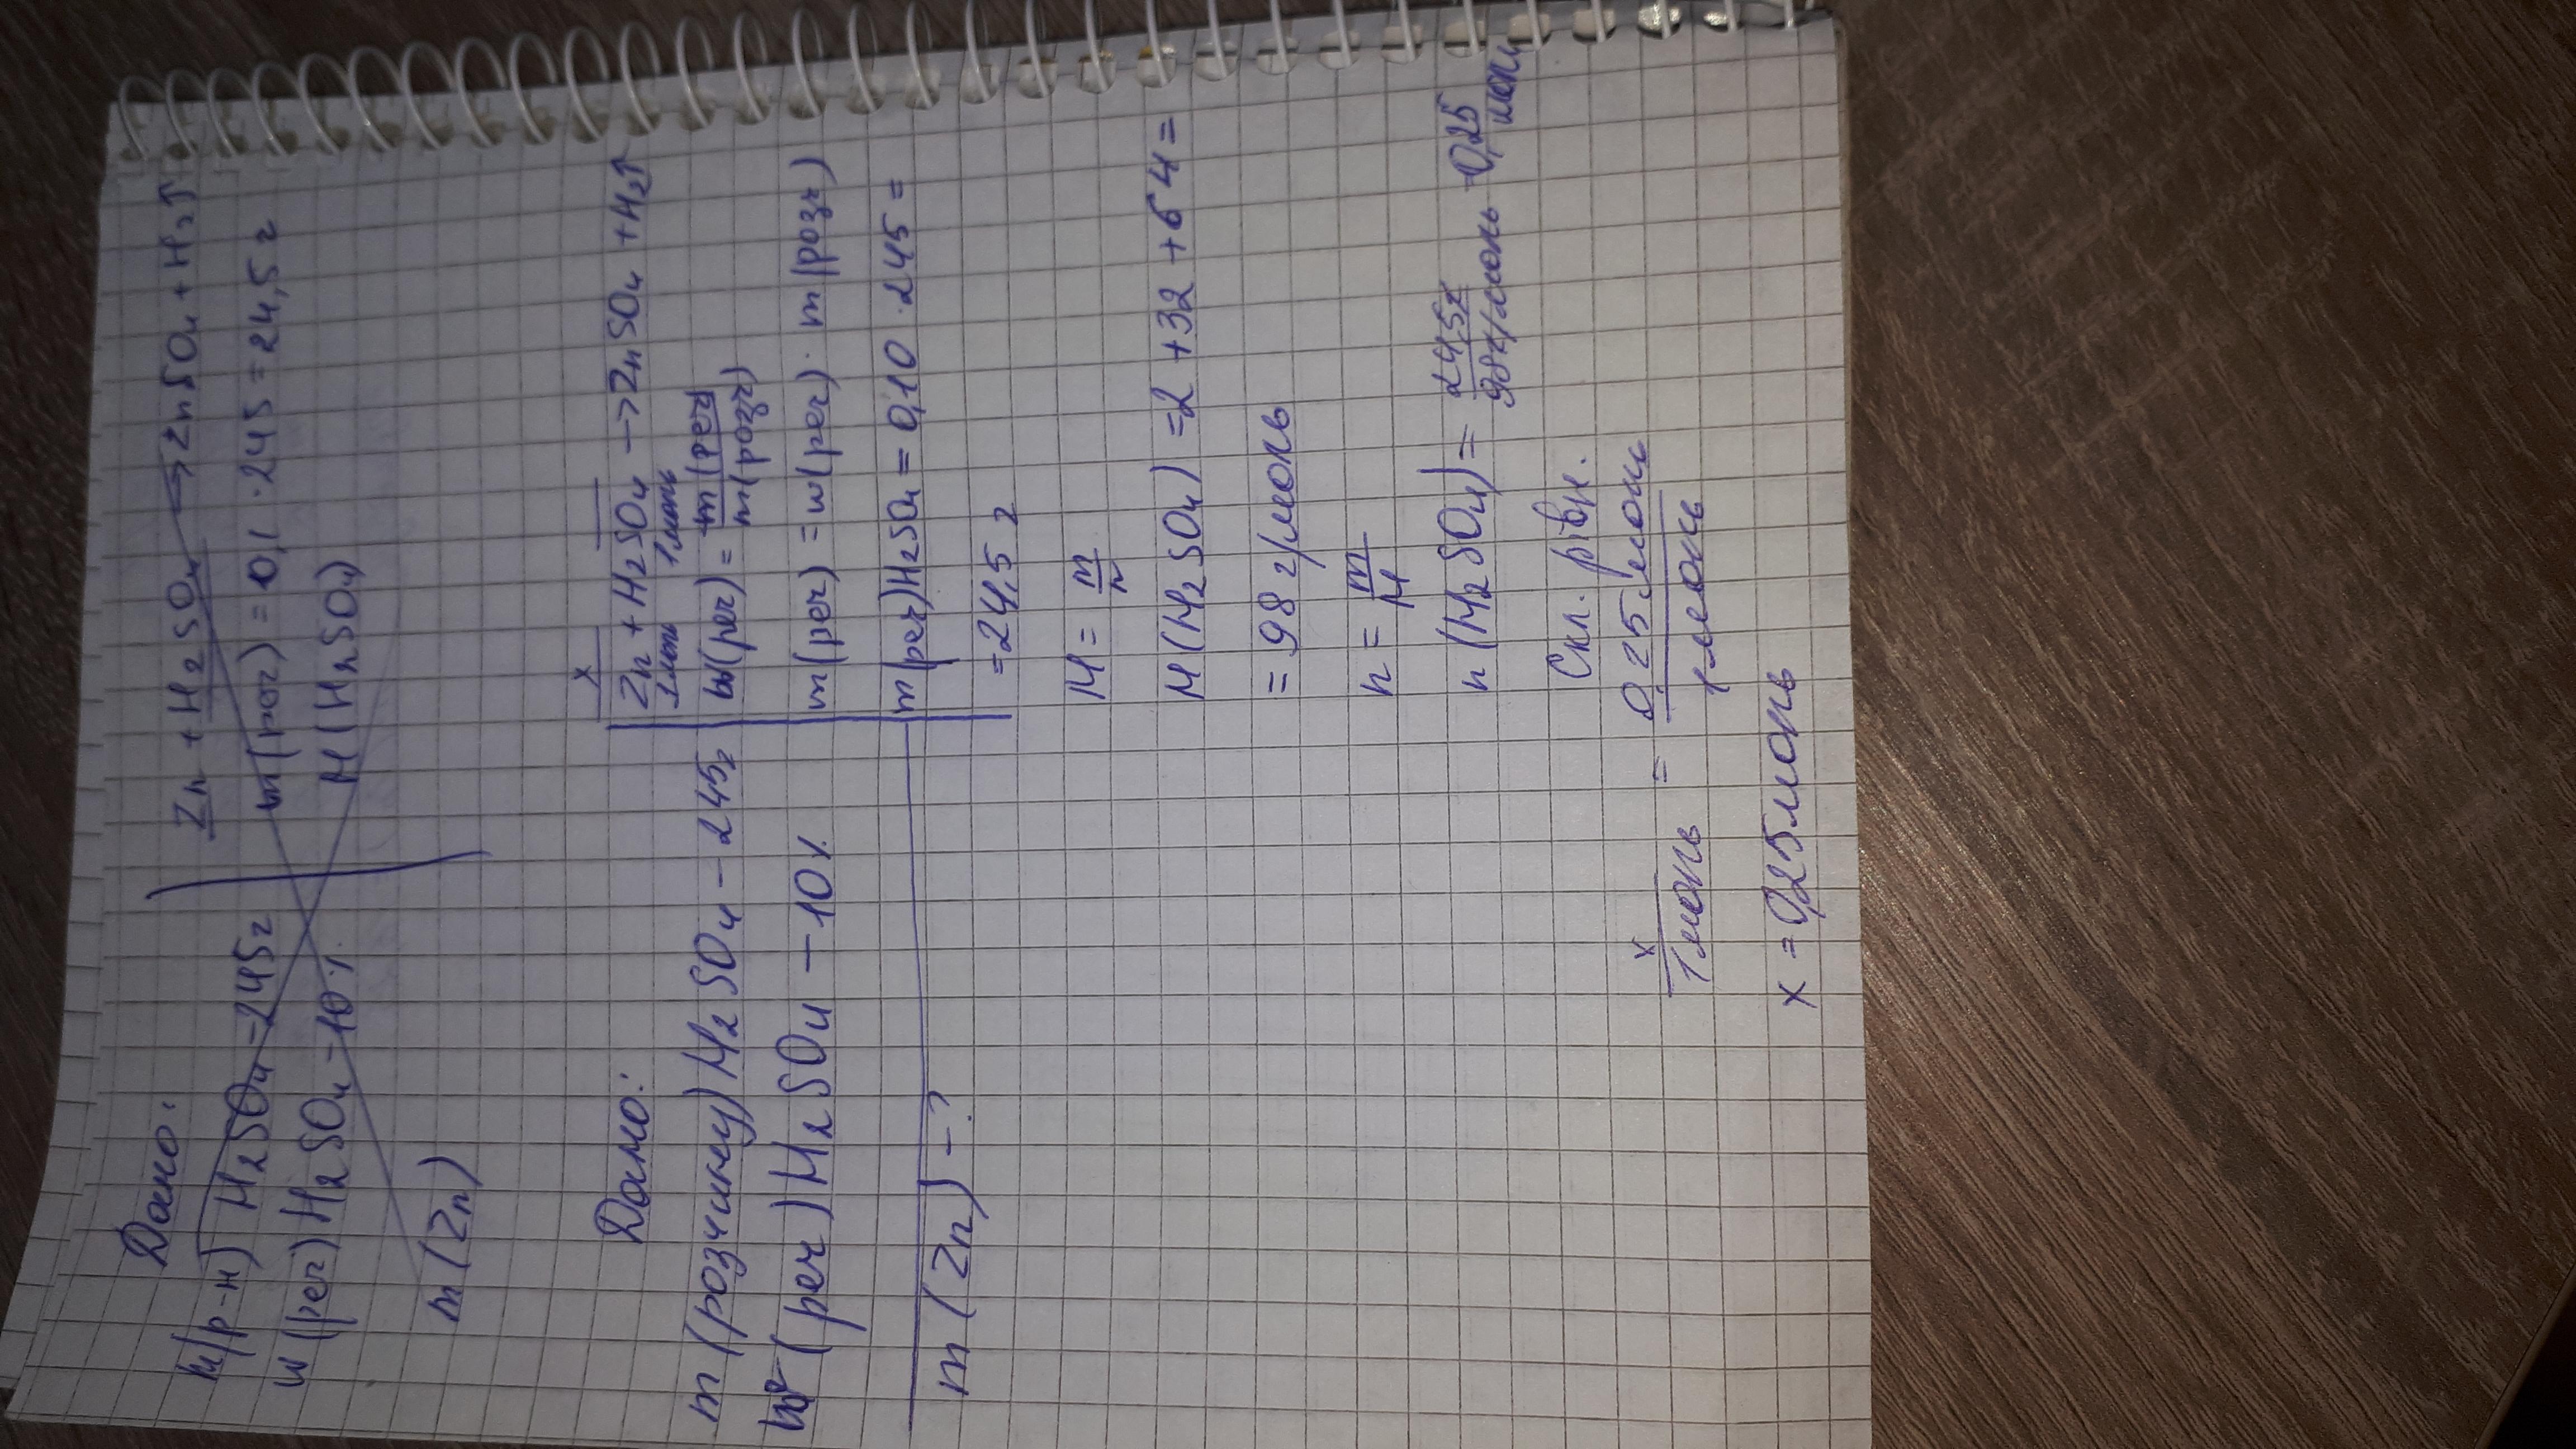 Дано:
m(р-н) H₂SO₄ - 245 г
w(реч) H₂SO₄ - 10%
m(Zn)
Zn + H₂SO₄ → ZnSO₄ + H₂↑
m(реч) = 0,1 · 245 = 24,5 г
M(H₂SO₄)
Дано:
m(розчину) H₂SO₄ - 245 г
w(реч) H₂SO₄ - 10%
m(Zn) - ?
x
Zn + H₂SO₄ → ZnSO₄ + H₂↑
1 моль 1 моль
w(реч) = m(реч) / m(розч)
m(реч) = w(реч) · m(розч)
m(реч) H₂SO₄ = 0,10 · 245 =
= 24,5 г
M = m/n
M(H₂SO₄) = 2 + 32 + 64 =
= 98 г/моль
n = m/M
n(H₂SO₄) = 24,5 г / 98 г/моль - 0,25 моль
Скл. рівн.
x / 1 моль = 0,25 моль / 1 моль
x = 0,25 моль